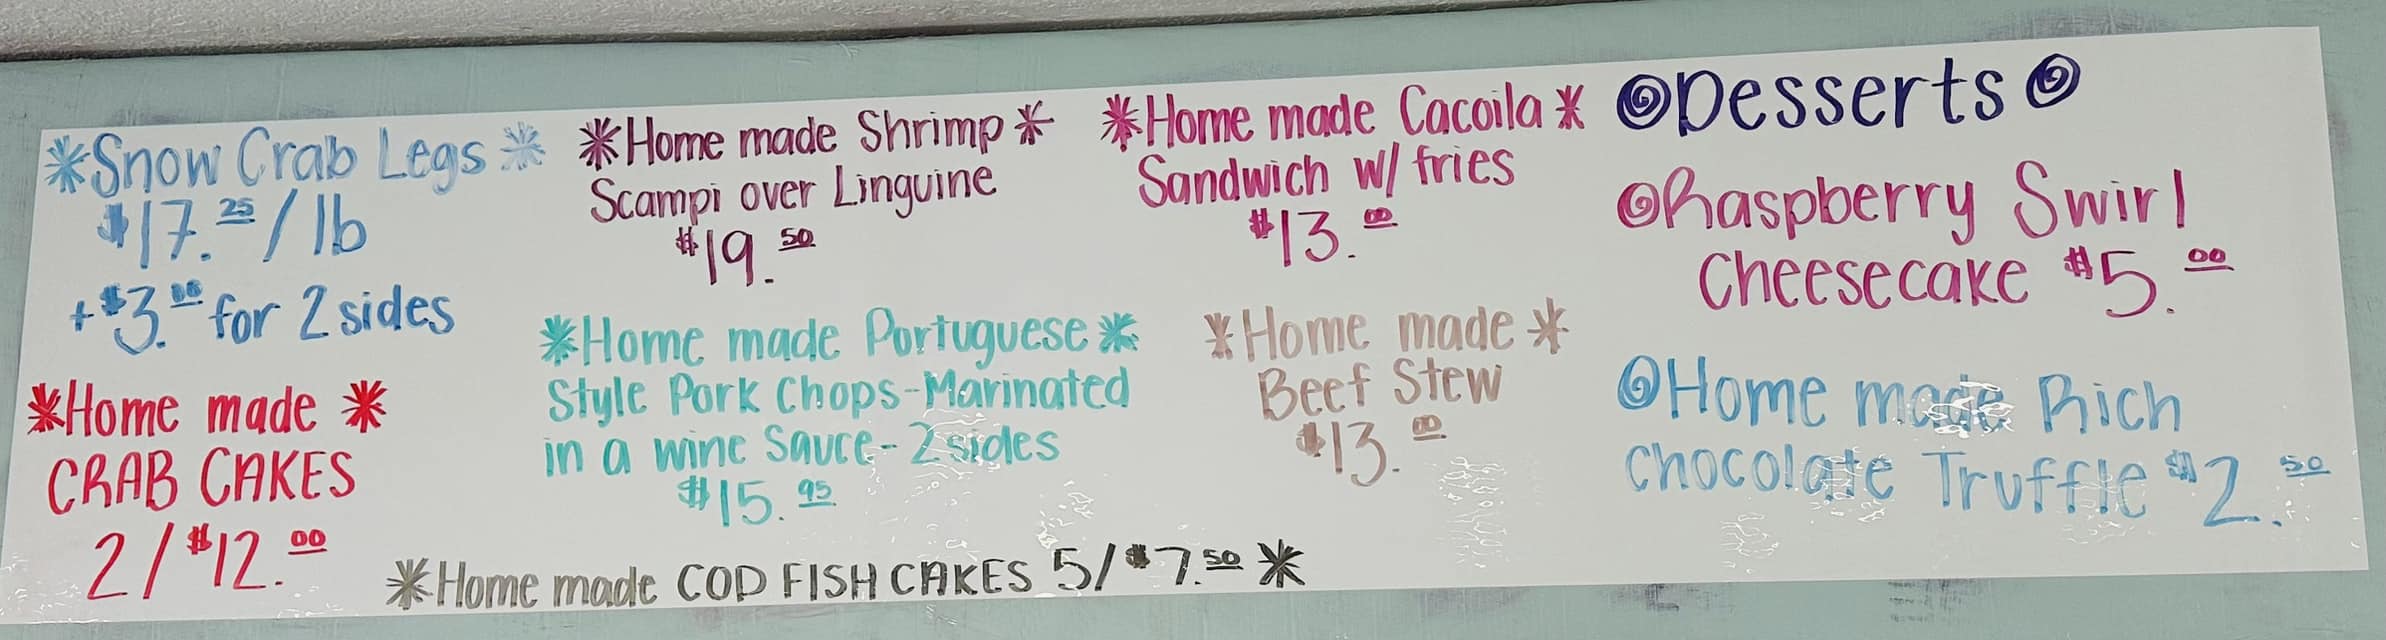 *Snow Crab Legs*
$17.25/lb
+$3.00 for 2 sides
*Home made*
CRAB CAKES
2/$12.00
*Home made Shrimp*
Scampi over Linguine
$19.50
*Home made Portuguese*
Style Pork Chops-Marinated
in a wine Sauce-2 sides
$15.95
*Home made COD FISH CAKES 5/$7.50*
*Home made Cacoila*
Sandwich w/ fries
$13.00
*Home made*
Beef Stew
$13.00
Desserts
Raspberry Swirl
Cheesecake $5.00
Home made Rich
Chocolate Truffle $2.50